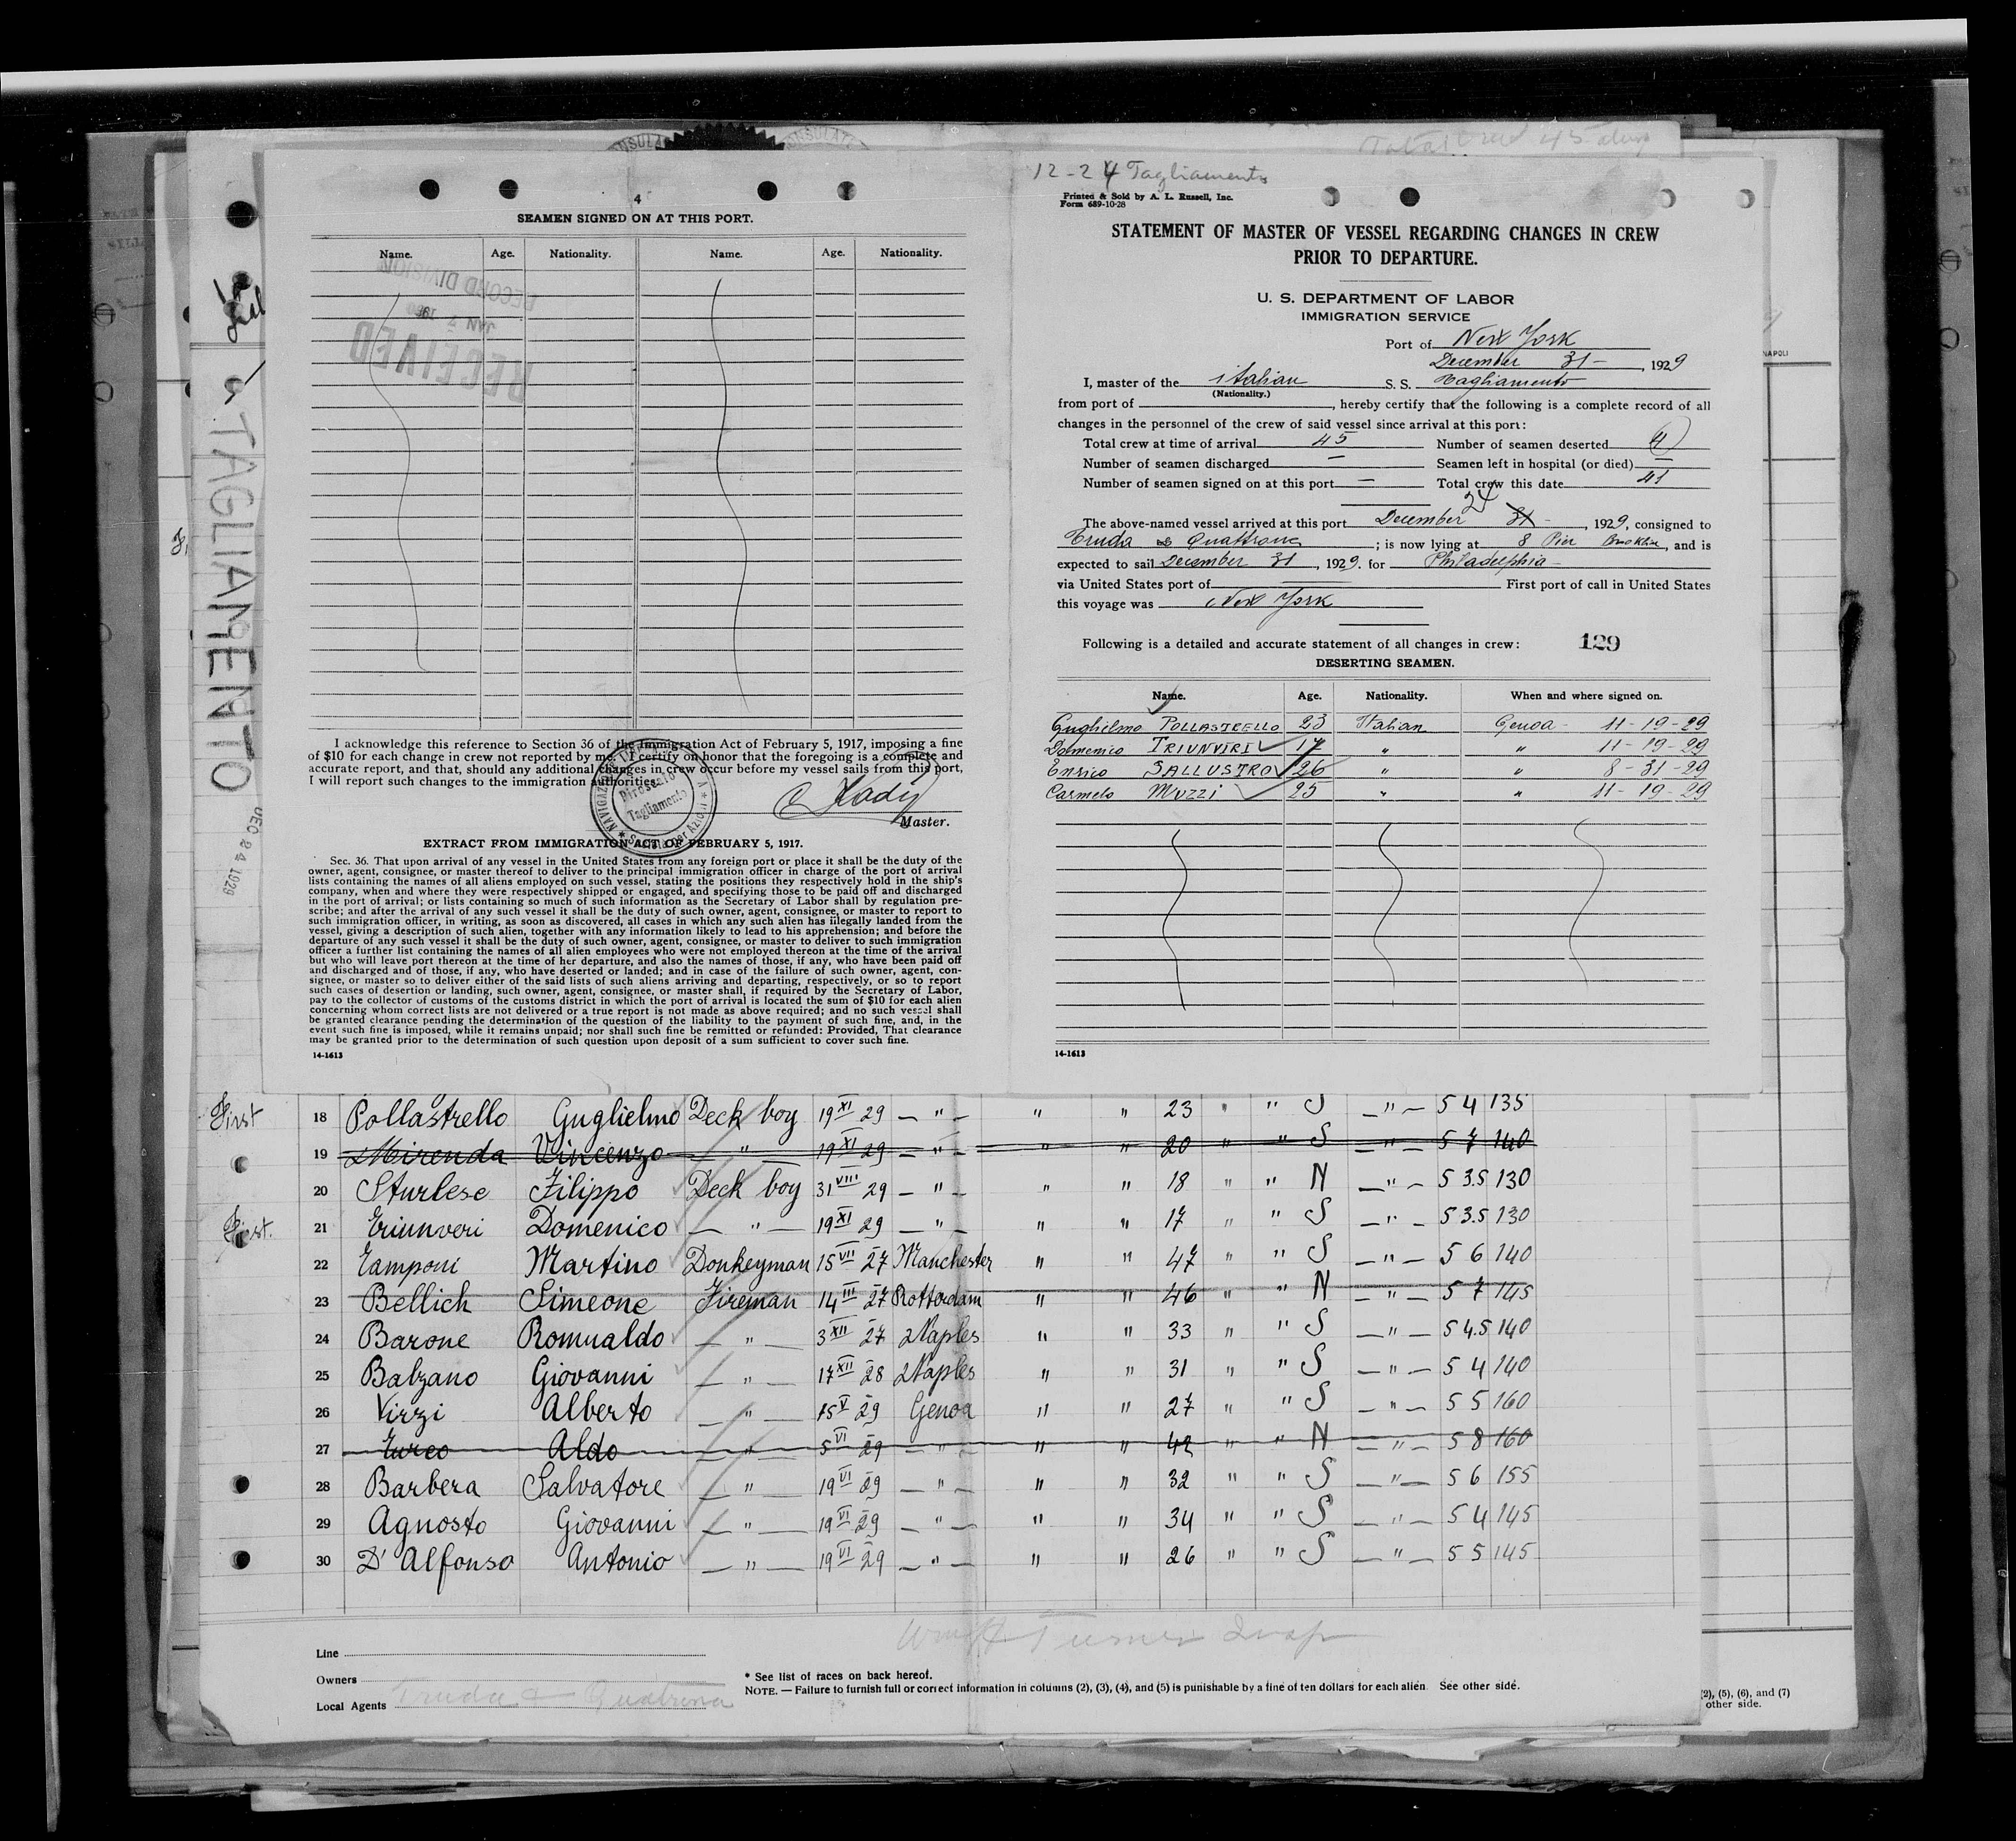 4
SEAMEN SIGNED ON AT THIS PORT.
Name. Age. Nationality. Name. Age. Nationality.
RECORD DIVISION
JAN 7
RECEIVED
I acknowledge this reference to Section 36 of the Immigration Act of February 5, 1917, imposing a fine
of $10 for each change in crew not reported by me. I certify on honor that the foregoing is a complete and
accurate report, and that, should any additional changes in crew occur before my vessel sails from this port,
I will report such changes to the immigration authorities.
Piroscafo
Tagliamento
Master.
EXTRACT FROM IMMIGRATION ACT OF FEBRUARY 5, 1917.
Sec. 36. That upon arrival of any vessel in the United States from any foreign port or place it shall be the duty of the
owner, agent, consignee, or master thereof to deliver to the principal immigration officer in charge of the port of arrival
lists containing the names of all aliens employed on such vessel, stating the positions they respectively hold in the ship's
company, when and where they were respectively shipped or engaged, and specifying those to be paid off and discharged
in the port of arrival; or lists containing so much of such information as the Secretary of Labor shall by regulation pre-
scribe; and after the arrival of any such vessel it shall be the duty of such owner, agent, consignee, or master to report to
such immigration officer, in writing, as soon as discovered, all cases in which any such alien has illegally landed from the
vessel, giving a description of such alien, together with any information likely to lead to his apprehension; and before the
departure of any such vessel it shall be the duty of such owner, agent, consignee, or master to deliver to such immigration
officer a further list containing the names of all alien employees who were not employed thereon at the time of the arrival
but who will leave port thereon at the time of her departure, and also the names of those, if any, who have been paid off
and discharged and of those, if any, who have deserted or landed; and in case of the failure of such owner, agent, con-
signee, or master so to deliver either of the said lists of such aliens arriving and departing, respectively, or so to report
such cases of desertion or landing, such owner, agent, consignee, or master shall, if required by the Secretary of Labor,
pay to the collector of customs of the customs district in which the port of arrival is located the sum of $10 for each alien
concerning whom correct lists are not delivered or a true report is not made as above required; and no such vessel shall
be granted clearance pending the determination of the question of the liability to the payment of such fine, and, in the
event such fine is imposed, while it remains unpaid; nor shall such fine be remitted or refunded: Provided, That clearance
may be granted prior to the determination of such question upon deposit of a sum sufficient to cover such fine.
14-1613
TAGLIAMENTO
DEC 24 1929
12-24 Tagliamento
Printed & Sold by A. L. Russell, Inc.
Form 689-10-28
STATEMENT OF MASTER OF VESSEL REGARDING CHANGES IN CREW
PRIOR TO DEPARTURE.
U. S. DEPARTMENT OF LABOR
IMMIGRATION SERVICE
Port of New York
December 31 - , 1929
I, master of the italian S. S. Tagliamento
(Nationality.)
from port of , hereby certify that the following is a complete record of all
changes in the personnel of the crew of said vessel since arrival at this port:
Total crew at time of arrival 45 Number of seamen deserted 4
Number of seamen discharged — Seamen left in hospital (or died) —
Number of seamen signed on at this port — Total crew this date 41
24
The above-named vessel arrived at this port December 31 - , 1929, consigned to
Truda & Quattrone ; is now lying at 8 Pier Brooklin, and is
expected to sail December 31, 1929. for Philadelphia -
via United States port of First port of call in United States
this voyage was New York
Following is a detailed and accurate statement of all changes in crew: 129
DESERTING SEAMEN.
Name. Age. Nationality. When and where signed on.
Guglielmo POLLASTRELLO 23 Italian Genoa - 11-19-29
Domenico TRIUNVIRI 17 " " 11-19-29
Enrico SALLUSTRO 26 " " 8-31-29
Carmelo MUZZI 25 " " 11-19-29
14-1613
First 18 Pollastrello Guglielmo Deck boy 19 XI 29 — " — " " 23 " " S — " — 5 4 135
19 Mirenda Vincenzo " 19 XI 29 — " — " " 20 " " S — " — 5 7 140
20 Sturlese Filippo Deck boy 31 VIII 29 — " — " " 18 " " N — " — 5 3.5 130
First. 21 Triunveri Domenico — " — 19 XI 29 — " — " " 17 " " S — " — 5 3.5 130
22 Tamponi Martino Donkeyman 15 VII 27 Manchester " " 47 " " S — " — 5 6 140
23 Bellich Simeone Fireman 14 III 27 Rotterdam " " 46 " " N — " — 5 7 145
24 Barone Romualdo — " — 3 XII 27 Naples " " 33 " " S — " — 5 4.5 140
25 Balzano Giovanni — " — 17 XII 28 Naples " " 31 " " S — " — 5 4 140
26 Virzi Alberto — " — 15 V 29 Genoa " " 27 " " S — " — 5 5 160
27 Turco Aldo — " — 5 VI 29 — " — " " 42 " " N — " — 5 8 160
28 Barbera Salvatore — " — 19 VI 29 — " — " " 32 " " S — " — 5 6 155
29 Agnosto Giovanni — " — 19 VI 29 — " — " " 34 " " S — " — 5 4 145
30 D'Alfonso Antonio — " — 19 VI 29 — " — " " 26 " " S — " — 5 5 145
Line
Owners
Local Agents Truda & Quatrona
* See list of races on back hereof.
NOTE. — Failure to furnish full or correct information in columns (2), (3), (4), and (5) is punishable by a fine of ten dollars for each alien See other side.
(2), (5), (6), and (7)
other side.
NAPOLI